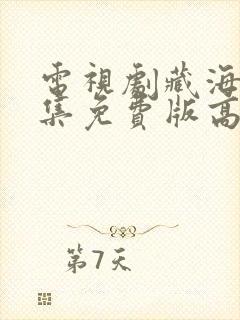 電視劇藏海
集免費版高
第7天